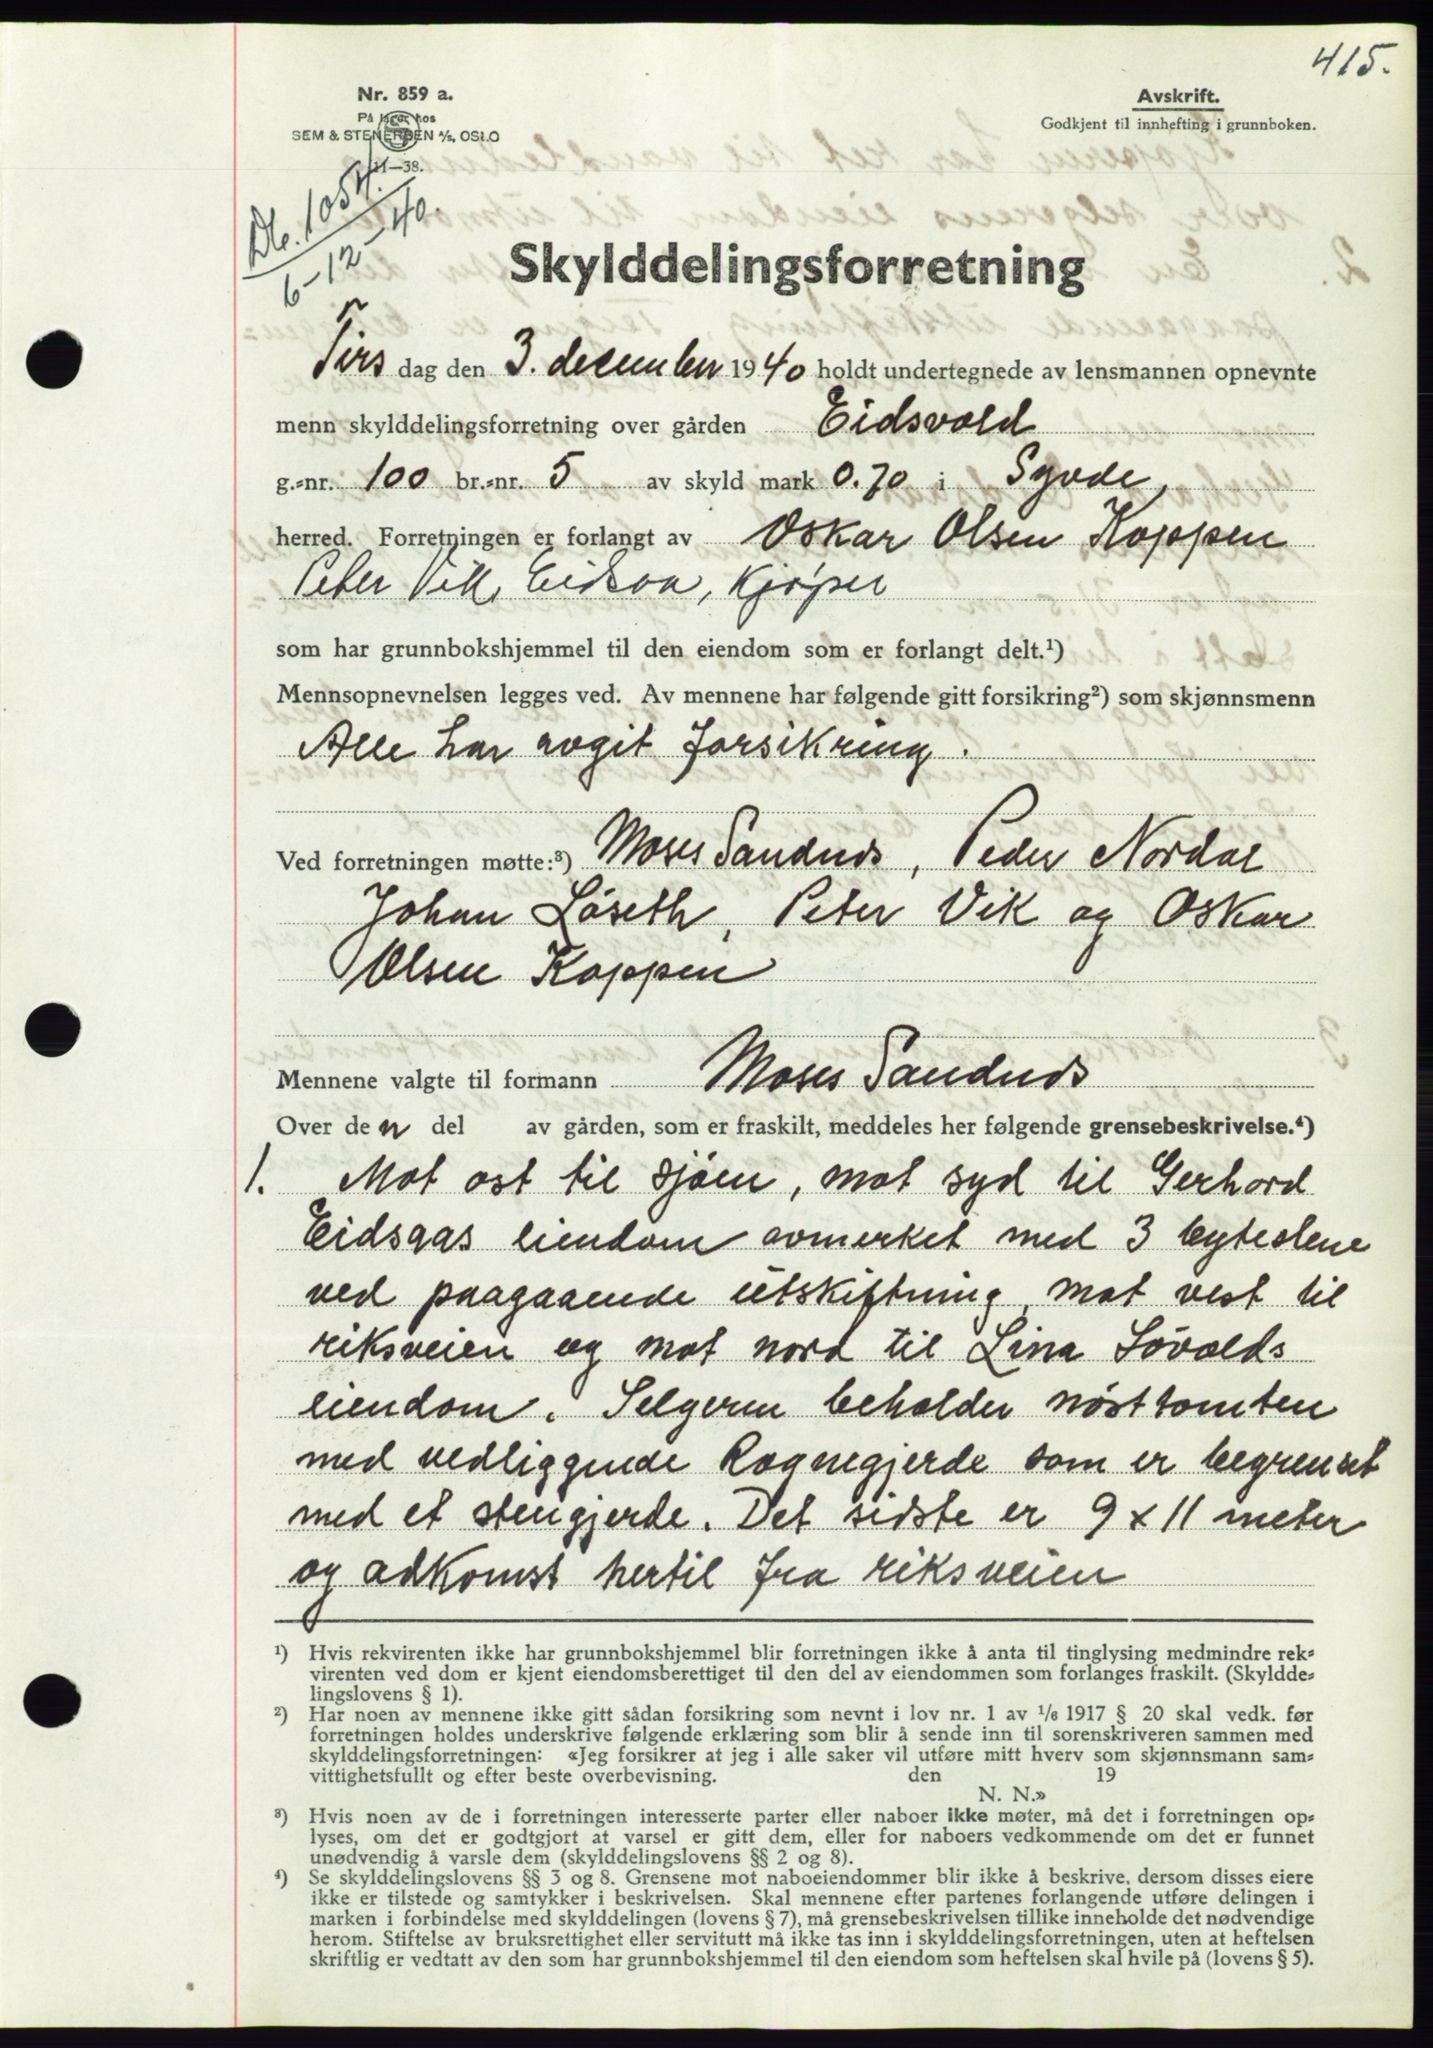 415.
Nr. 859 a.
På lager hos
SEM & STENERSEN A/S, OSLO
11—38.
Avskrift.
Godkjent til innhefting i grunnboken.
Db. 1054.
6-12-40.
Skylddelingsforretning
Tirs dag den 3. december 1940 holdt undertegnede av lensmannen opnevnte
menn skylddelingsforretning over gården Eidsvold
g.=nr. 100 br.=nr. 5 av skyld mark 0.70 i Syvde,
herred. Forretningen er forlangt av Oskar Olsen Koppen
Peter Vik, Eidsaa, kjøper
som har grunnbokshjemmel til den eiendom som er forlangt delt.¹)
Mennsopnevnelsen legges ved. Av mennene har følgende gitt forsikring²) som skjønnsmenn
Alle har avgit forsikring.
Ved forretningen møtte:³) Moses Sandnes, Peder Nordal
Johan Løseth, Peter Vik og Oskar
Olsen Koppen
Mennene valgte til formann Moses Sandnes
Over den del av gården, som er fraskilt, meddeles her følgende grensebeskrivelse.⁴)
1. Mot øst til sjøen, mot syd til Gerhard
Eidsaas eiendom avmerket med 3 bytestene
ved paagaaende utskiftning, mot vest til
riksveien og mot nord til Lina Løvolds
eiendom. Selgeren beholder nøsttomten
med vedliggende Rognegjerde som er begrenset
med et stengjerde. Det sidste er 9 x 11 meter
og adkomst hertil fra riksveien
¹) Hvis rekvirenten ikke har grunnbokshjemmel blir forretningen ikke å anta til tinglysing medmindre rek=
virenten ved dom er kjent eiendomsberettiget til den del av eiendommen som forlanges fraskilt. (Skyldde=
lingslovens § 1).
²) Har noen av mennene ikke gitt sådan forsikring som nevnt i lov nr. 1 av 1/6 1917 § 20 skal vedk. før
forretningen holdes underskrive følgende erklæring som blir å sende inn til sorenskriveren sammen med
skylddelingsforretningen: «Jeg forsikrer at jeg i alle saker vil utføre mitt hverv som skjønnsmann sam=
vittighetsfullt og efter beste overbevisning. den 19
N. N.»
³) Hvis noen av de i forretningen interesserte parter eller naboer ikke møter, må det i forretningen op=
lyses, om det er godtgjort at varsel er gitt dem, eller for naboers vedkommende om det er funnet
unødvendig å varsle dem (skylddelingslovens §§ 2 og 8).
⁴) Se skylddelingslovens §§ 3 og 8. Grensene mot naboeiendommer blir ikke å beskrive, dersom disses eiere
ikke er tilstede og samtykker i beskrivelsen. Skal mennene efter partenes forlangende utføre delingen i
marken i forbindelse med skylddelingen (lovens § 7), må grensebeskrivelsen tillike inneholde det nødvendige
herom. Stiftelse av bruksrettighet eller servitutt må ikke tas inn i skylddelingsforretningen, uten at heftelsen
skriftlig er vedtatt av den som har grunnbokshjemmel til den eiendom som heftelsen skal hvile på (lovens § 5).